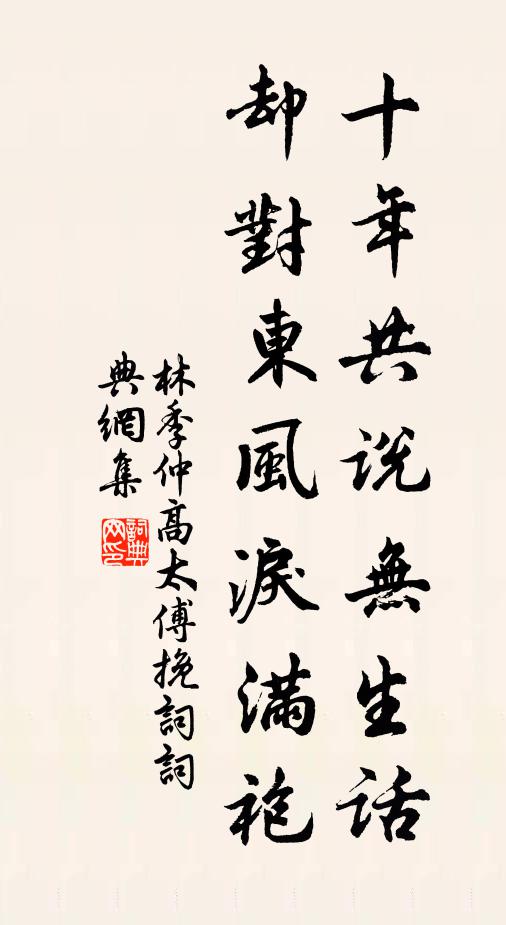 十年共說無生話
却對東風淚滿袍
林季仲高太傅挽詞詞
典網集
詞典
网印